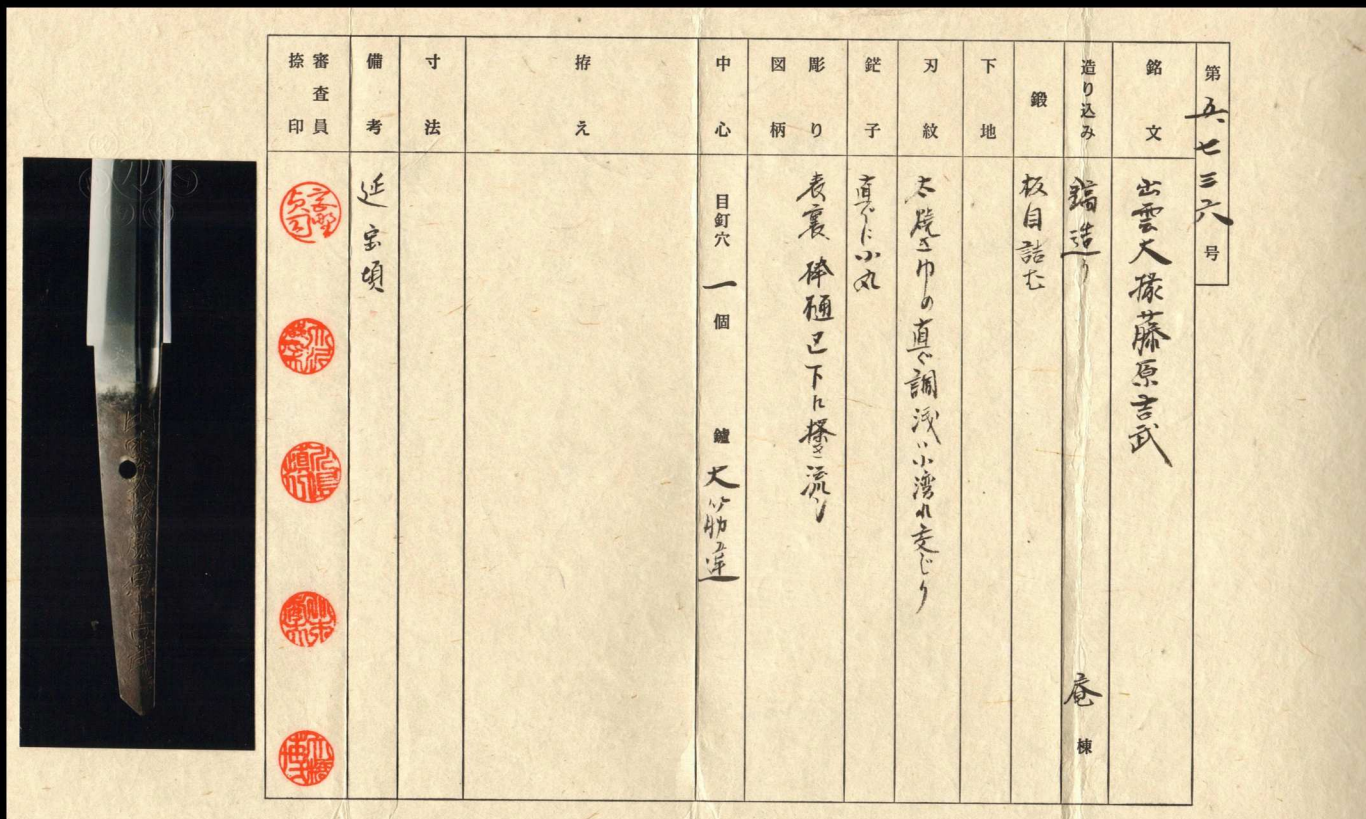 第五、七三六号
銘文
出雲大掾藤原吉武
造り込み
鎬造り
庵棟
鍛
板目詰む
下地
刃紋
太焼き巾の直ぐ調浅い小湾れ交じり
鋩子
直ぐに小丸
彫り
図柄
表裏棒樋
下に掻き流し
中心
目釘穴一個
鑢大筋違
拵え
寸法
備考
延宝頃
審査員
捺印